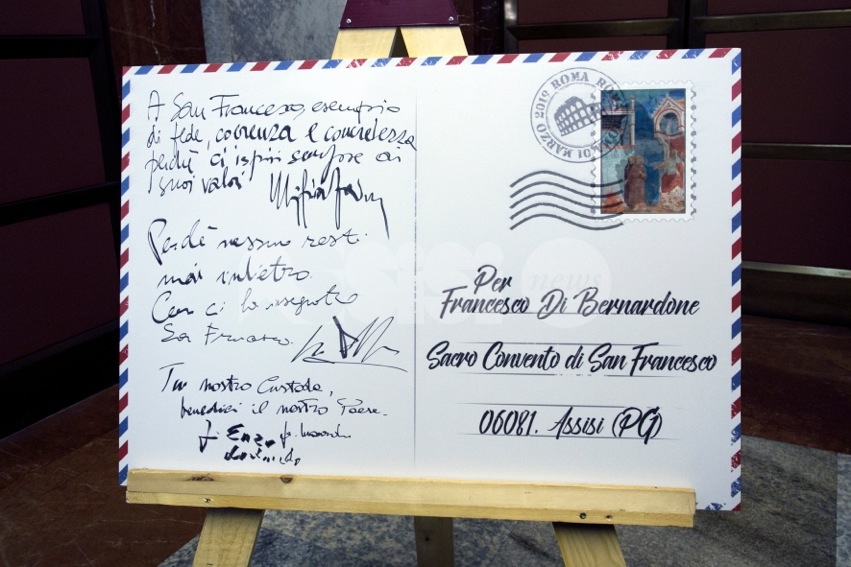 A San Francesco, esempio
di fede, coerenza e concretezza
perché ci ispiri sempre ai
suoi valori
Perché nessuno resti
mai indietro.
Come ci ha insegnato
San Francesco.
Tu nostro Custode,
benedici il nostro Paese.
Enzo
ROMA
MARZO 2019
Per
Francesco Di Bernardone
Sacro Convento di San Francesco
06081. Assisi (PG)
assisi news